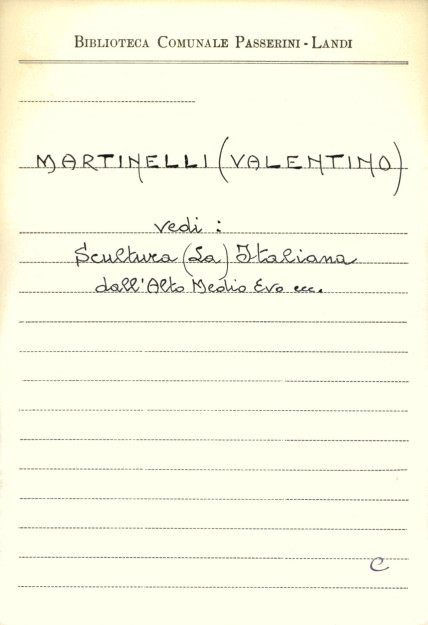 BIBLIOTECA COMUNALE PASSERINI - LANDI
MARTINELLI (VALENTINO)
vedi :
Scultura (La) Italiana
dall'Alto Medio Evo ecc.
C